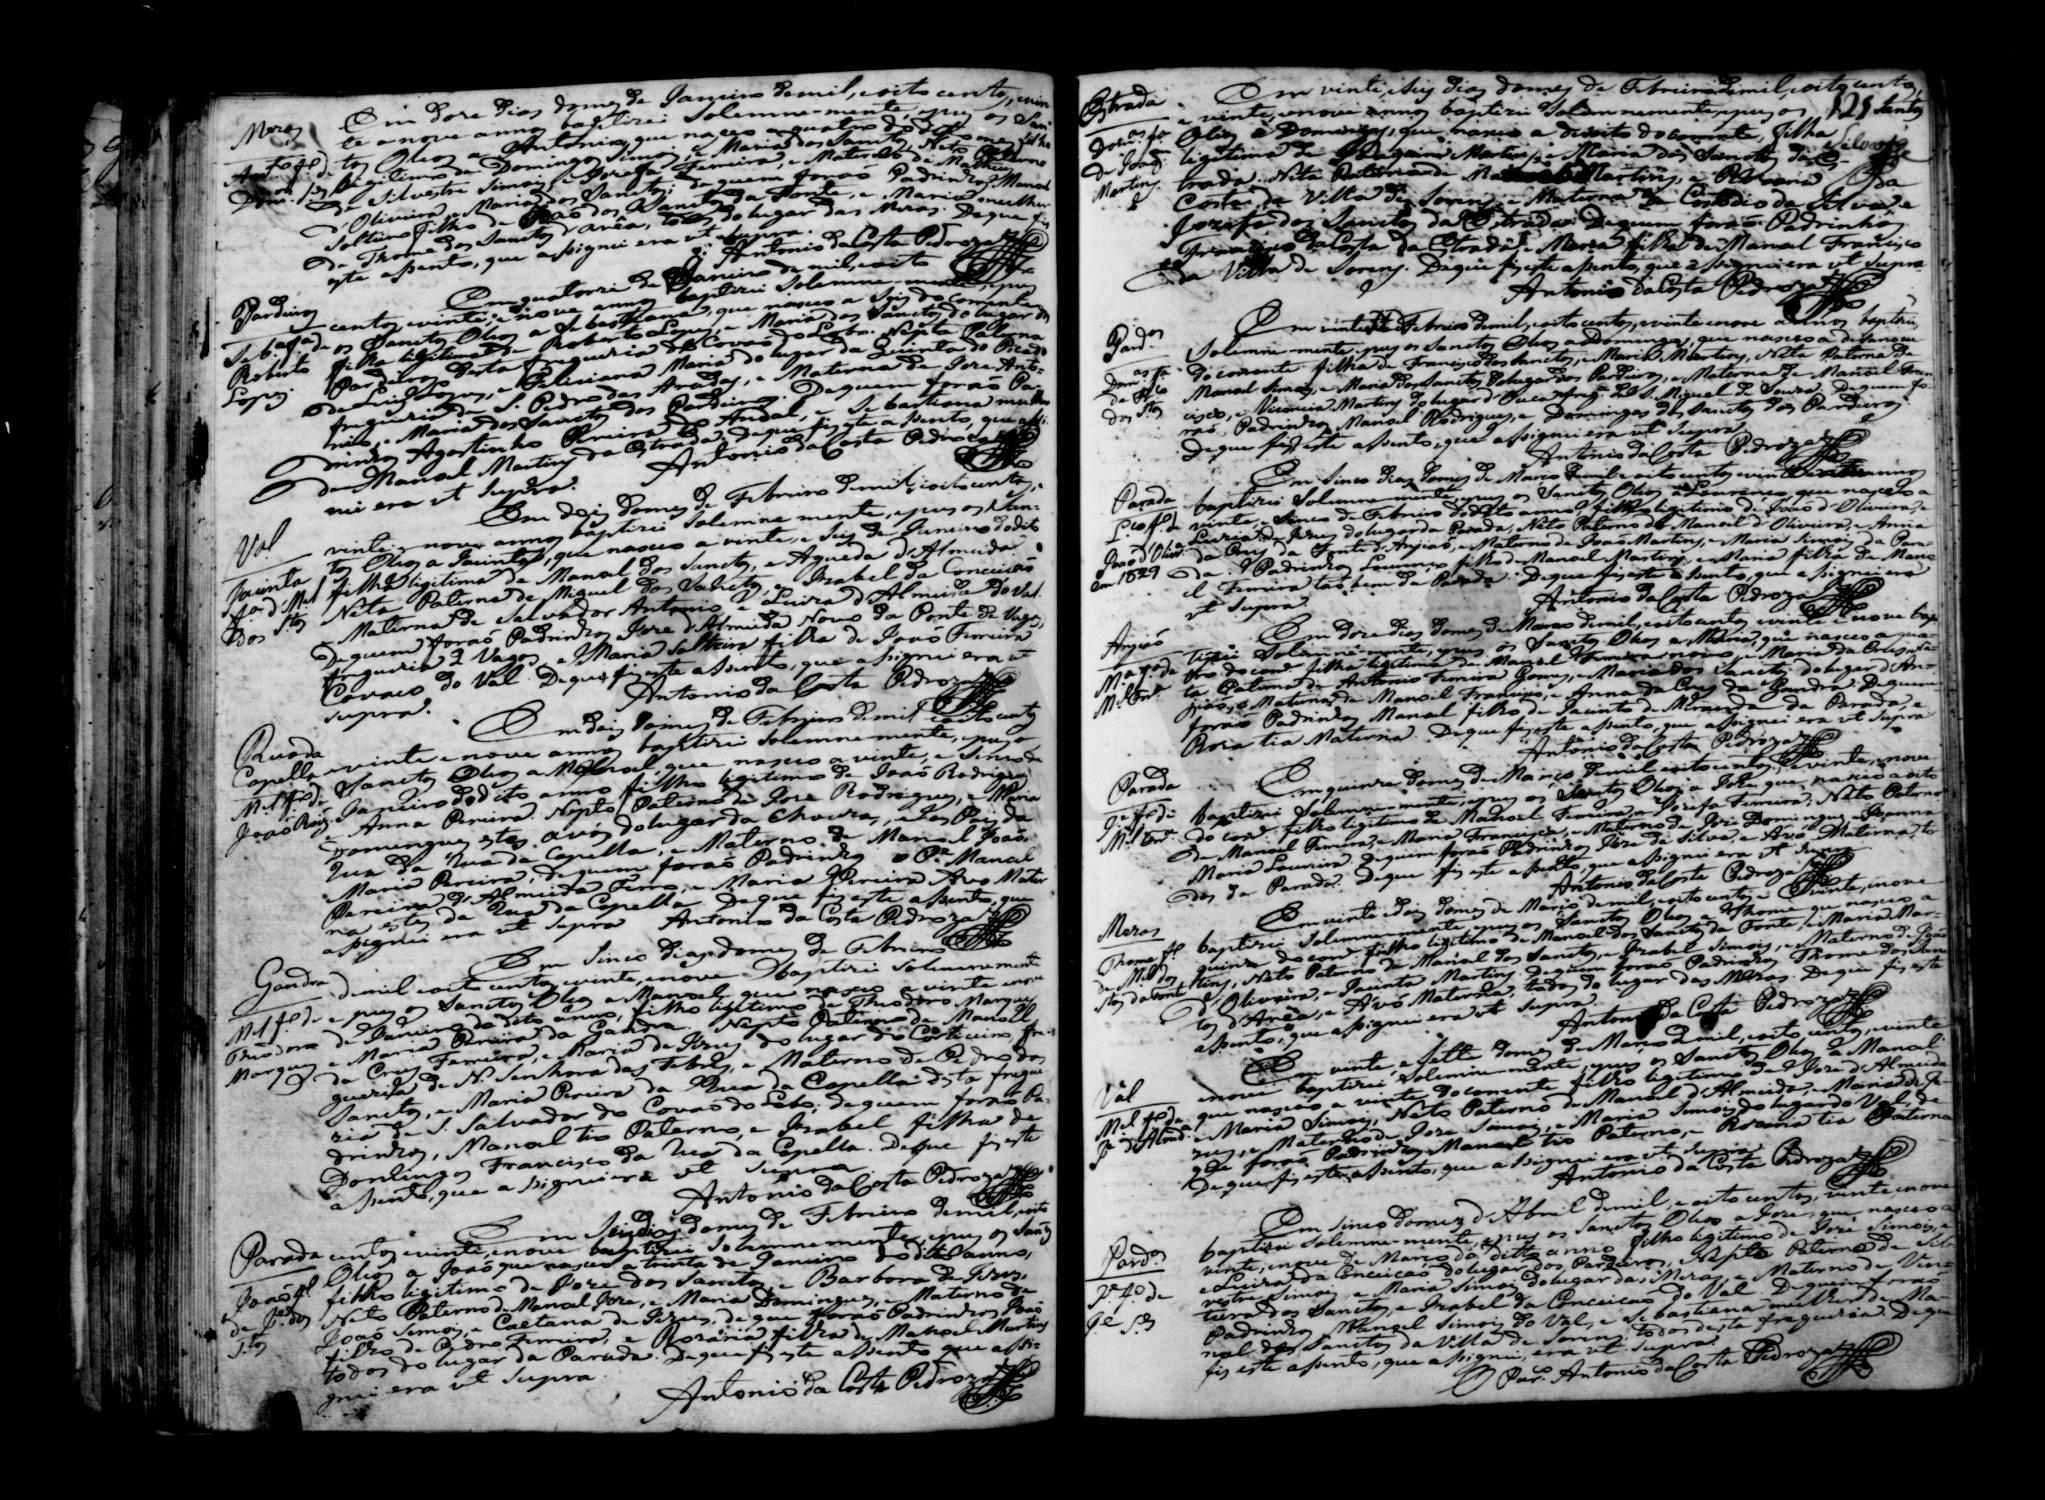 Meras
Ant.ª f.ª de
Dom.os Simões
Em doze dias do mes de Janeiro de mil, e oito centos, e vin
te e nove annos baptizei Solemne-mente, e pus os San
tos Oleos a Antonia, que nasceo a quatro do dito mes filha
legitima de Domingos Simoes, e Maria dos Santos, Neta Paterna
de Silvestre Simoes, e Josefa Ferreira, e Materna de Manoel
d'Oliveira, e Maria dos Sanctos; de quem foraõ Padrinhos Manoel
Solteiro filho de Joaõ dos Sanctos da Fonte, e Maria mulher
de Thome dos Sanctos d'Arêa, todos do lugar das Meras. De que fis
este assento, que assignei era ut supra.
Antonio da Costa Pedroza
Pardieiros
Sebas.ª f.ª de
Roberto
Lopes
Em quatorze de Janeiro de mil, e oito
centos, e vinte, e nove annos baptizei Solemne-mente, e pus
os Sanctos Oleos a Sebastiana, que nasceo a Seis do corrente
filha legitima de Roberto Lopes, e Maria dos Sanctos do lugar dos
Pardieiros desta freguezia de Covaõ do Lobo. Nepta Paterna
de Luis Lopes, e Feliciana Maria do lugar da Quinta do Picado
freguezia de S. Pedro das Aradas, e Materna de Joze Anto-
nio, e Maria dos Sanctos dos Pardieiros. De quem foraõ Pa-
drinhos Agostinho Pereira do Andal, e Sebastiana mulher
de Manoel Martins da Estrada; de que fis este assento, que assi-
nei era ut supra.
Antonio da Costa Pedroza
Val
Jacinta
f.ª de M.el
dos S.tos
Em dois do mes de Febreiro de mil, e oito centos, e
vinte e nove annos baptizei Solemne mente, e pus os San-
tos Oleos a Jacinta, que nasceo a vinte, e Seis de Janeiro do dito
filha legitima de Manoel dos Sanctos, e Agueda d'Almeida
Neta Paterna de Miguel dos Sanctos, e Izabel da Conceicaõ
Materna de Salvador Antonio, e Luiza d'Almeida do Val.
De quem foraõ Padrinhos Joze d'Almeida Novo da Ponte de Vagos,
freguezia de Vagos, e Maria Solteira filha de Joaõ Ferreira
Covaco do Val. De que fis este assento, que assignei era ut
supra.
Antonio da Costa Pedroza
Rua da
Capella
M.el f.º de
Joaõ Roiz
Em dois do mes de Febreiro de mil e oito centos
e vinte e nove annos baptizei Solemne-mente, e pus os
Sanctos Oleos a Manoel, que nasceo a vinte, e Sinco de
Janeiro do dito anno filho legitimo de Joaõ Rodrigues
e Anna Pereira. Nepto Paterno de Joze Rodrigues, e Maria
Domingues estes avós do lugar da Chouza, e os Pais da
Rua da Capella, e Materno de Manoel Joaõ,
Maria Pereira; de quem foraõ Padrinhos o P.e Manoel
Pereira d'Almeida Ferro, e Maria Pereira Avo Mater
na estes da Rua da Capella. De que fis este assento, que
assignei era ut supra
Antonio da Costa Pedroza
Gandra
M.el f.º de
Theodoro
Marques
Em Sinco dias do mes de Febreiro
de mil e oito centos, e vinte, e nove baptizei Solemnemente
e pus os Sanctos Oleos a Manoel que nasceo a vinte e nove
de Janeiro do dito anno, filho legitimo de Theodoro Marques
e Maria Pereira da Gandra. Nepto Paterno de Manoel
da Crus Ferreira, e Maria de Jezus do lugar do Corticeiro fre-
guezia de N.ª Senhora das Febres, e Materno de Pedro dos
Sanctos, e Maria Pereira da Rua da Capella desta fregue
zia de S. Salvador do Covaõ do Lobo; de quem foraõ Pa-
drinhos, Manoel tio Paterno, e Izabel filha de
Domingos Francisco da Rua da Capella. De que fis este
assento, que assignei era ut supra
Antonio da Costa Pedroza
Parada
Joaõ f.º
de J.e dos
S.tos
Em Seis dias do mes de Febreiro de mil, e oito
centos e vinte, e nove baptizei Solemnemente, e pus os Sanctos
Oleos a Joaõ que nasceo a trinta de Janeiro do dito anno,
filho legitimo de Joze dos Sanctos, e Barbora de Jezus,
Neto Paterno de Manoel Joze, e Maria Domingues, e Materno de
Joaõ Simoes, e Caetana de Jezus, de que foraõ Padrinhos Joaõ
filho de Pedro Ferreira, e Rozaria filha de Manoel Martins
todos do lugar da Parada. De que fis este assento que assi-
gnei era ut supra.
Antonio da Costa Pedroza
Estrada
Dom.as f.ª
de Joaq.
Martins
121
Em vinte, e Seis dias do mes de Febreiro de mil, e oito centos,
e vinte, e nove annos baptizei Solemnemente, e pus os Santos
Oleos a Domingas, que nasceo a dezoito do corrente, filha
legitima de Joaquim Martins, e Maria dos Sanctos da Es-
trada. Neta Paterna de Manoel Martins, e Maria da
Costa da Villa de Sorens, e Materna de Custodio da Silva, e
Jozefa dos Sanctos da Estrada. De quem foraõ Padrinhos
Francisco da Costa da Estrada, e Maria filha de Manoel Francisco
da Villa de Sorens. De que fis este assento, que assignei era ut supra
Antonio da Costa Pedroza
Pard.os
Dom.as f.ª
de Fr.co
dos S.tos
Em vinte de Febreiro de mil, e oito centos, e vinte e nove annos baptizei,
Solemne-mente, e pus os Sanctos Oleos a Domingas, que nasceo a dezanove
do corrente filha de Francisco dos Sanctos, e Maria Martins, Neta Paterna de
Manoel Simoes, e Maria dos Sanctos do lugar dos Pardieiros, e Materna de Manoel Fran-
cisco, e Vicencia Martins do lugar d'Ouca freg.ª de S. Miguel de Souza. De quem fo-
raõ Padrinhos Manoel Rodrigues, e Domingas dos Sanctos dos Pardieiros.
De que fis este assento, que assignei era ut supra
Antonio da Costa Pedroza
Parada
L.ço f.º de
Joaõ d'Oliv.ª
em 1829
Em Sinco dias do mes de Março de mil e oito centos e vinte e nove annos
baptizei Solemne-mente, e pus os Sanctos Oleos a Lourenço, que nasceo a
vinte, e Sinco de Febreiro do dito anno, filho legitimo de Joaõ d'Oliveira, e
Luzia de Jezus do lugar da Parada, Neto Paterno de Manoel d'Oliveira, e Anna
da Crus da Fonte d'Anjiaõ, e Materno de Joaõ Martins, e Maria Simois da Para
da. Padrinhos Lourenço filho de Manoel Martins, e Maria filha de Mano
el Ferreira taõ bem da Parada. De que fis este assento, que assignei era
ut supra.
Antonio da Costa Pedroza
Anjiaõ
Ma. f.ª de
M.el Ferr.ª
Em doze dias do mes de Março de mil, e oito centos e vinte e nove bap
tizei Solemne-mente, e pus os Sanctos Oleos a Maria, que nasceo a qua-
tro do corr.e filha legitima de Manoel Ferreira novo, e Maria da Crus, Ne-
ta Paterna de Antonio Ferreira Gomes, e Maria dos Sanctos do lugar d'An-
jiaõ, e Materna de Manoel Francisco, e Anna da Crus da Gandra. De quem
foraõ Padrinhos Manoel filho de Jacinto de Miranda da Parada, e
Roza tia Materna. De que fis este assento, que assignei era ut supra
Antonio da Costa Pedroza
Parada
J.e f.º de
M.el Ferr.ª
Em quinze do mes de Março de mil e oito centos, e vinte, e nove
baptizei Solemne-mente, e pus os Sanctos Oleos a Joze que nasceo a oito
do corr.e filho legitimo de Manoel Ferreira, e Jozefa Ferreira; Neto Paterno
de Manoel Ferreira, e Maria Francisca, e Materno de Joze Domingues, e Joanna
Maria Loureira. De quem foraõ Padrinhos Joze da Silva, e Avó Materna, to
dos da Parada. De que fis este assento, que assignei era ut supra
Antonio da Costa Pedroza
Meras
Thome f.º
de M.el dos
S.tos da Fonte
Em vinte e dois do mes de Março de mil, e oito centos e vinte, e nove
baptizei Solemne-mente, e pus os Sanctos Oleos a Thome que nasceo a
quinze do corr.e filho legitimo de Manoel dos Sanctos da Fonte, e Maria Mar-
tins, Neto Paterno de Manoel dos Sanctos, e Izabel Simois, e Materno de Joaõ
d'Oliveira, e Jacinta Martins. De quem foraõ Padrinhos Thome dos San-
tos d'Arêa, e Avó Materna, todos do lugar das Meras. De que fis este
assento, que assignei era ut supra.
Antonio da Costa Pedroza
Val
M.el f.º de
J.e d'Almd.ª
Em vinte, e Sette do mes de Março de mil, e oito centos, e vinte
e nove baptizei Solemne-mente, e pus os Sanctos Oleos a Manoel
que nasceo a vinte do corrente filho legitimo de Joze d'Almeida
e Maria Simois, Neto Paterno de Manoel d'Almeida e Maria de Je-
zus, e Materno de Joze Simois, e Maria Simois do lugar do Val, de
que foraõ Padrinhos Manoel tio Paterno, e Rozaria tia Paterna
De que fis este assento, que assignei era ut supra
Antonio da Costa Pedroza
Pard.os
J.e f.º de
J.e S.es
Em sinco do mes d'Abril de mil, e oito centos, e vinte e nove
baptizei Solemne-mente, e pus os Sanctos Oleos a Joze, que nasceo a
vinte, e nove de Março do ditto anno filho legitimo de Joze Simois, e
Luiza da Conceicaõ do lugar dos Pardieiros, Nepto Paterno de Sil-
vestre Simois, e Maria Simois do lugar das Meras, e Materno de Ven-
tura dos Sanctos, e Izabel da Conceicaõ do Val. De quem foraõ
Padrinhos Manoel Simois do Val, e Sebastiana mulher de Ma-
noel dos Sanctos da Villa de Sorens, todos desta freguezia. De que
fis este assento, que assignei, era ut supra
Antonio da Costa Pedroza